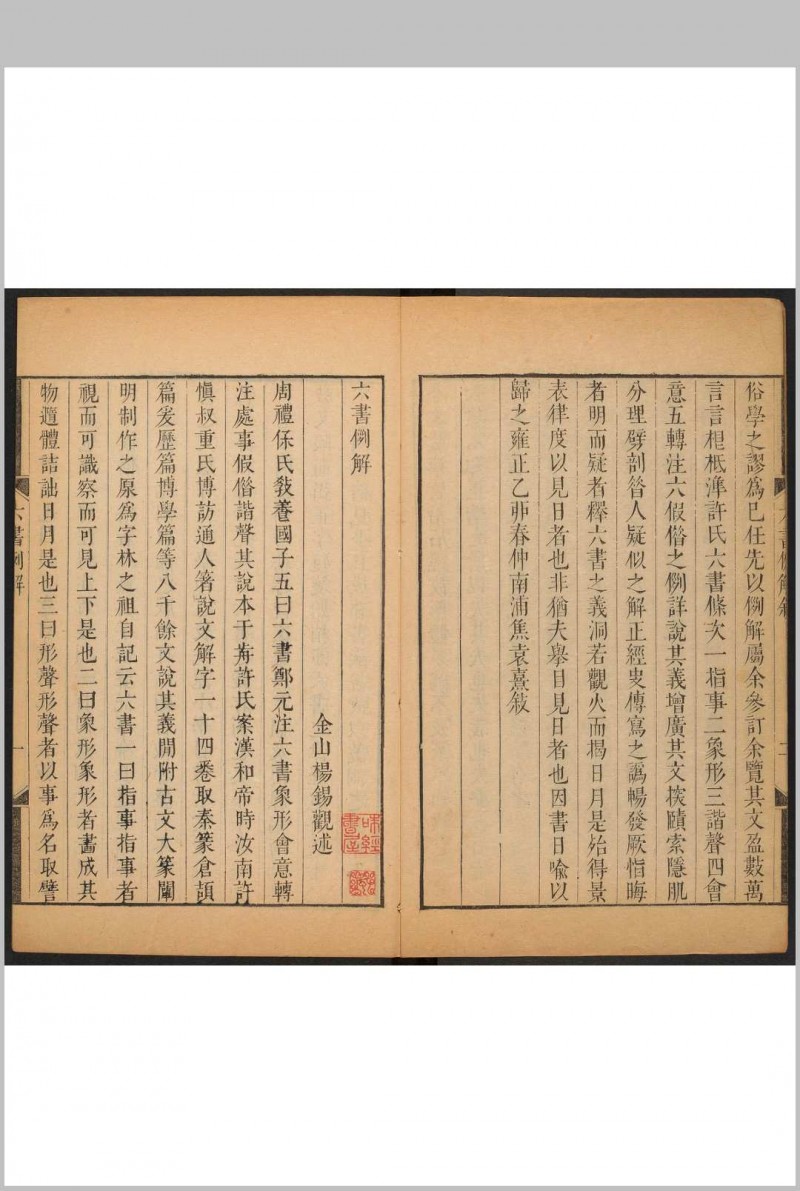 俗學之謬爲已任先以例解屬余參訂余覽其文盈數萬
言言相柢準許氏六書條次一指事二象形三諧聲四會
意五轉注六假借之例詳說其義增廣其文探賾索隱肌
分理劈剖昝人疑似之解正經史傳寫之譌暢發厥恉晦
者明而疑者釋六書之義洞若觀火而揭日月是始得景
表律度以見日者也非猶夫舉目見日者也因書日喻以
歸之雍正乙丣春仲南浦焦袁熹敍
六書例解
金山楊錫觀述
周禮保氏敎養國子五曰六書鄭元注六書象形會意轉
注處事假借諧聲其說本于歬許氏案漢和帝時汝南許
愼叔重氏博訪通人箸說文解字一十四卷取秦篆倉頡
篇爰歷篇博學篇等八千餘文說其義閒附古文大篆闡
明制作之原爲字林之祖自記云六書一曰指事指事者
視而可識察而可見上下是也二曰象形象形者畵成其
物隨體詰詘日月是也三曰形聲形聲者以事爲名取譬
六書例解
一
六書例解敍
二
味經書屋